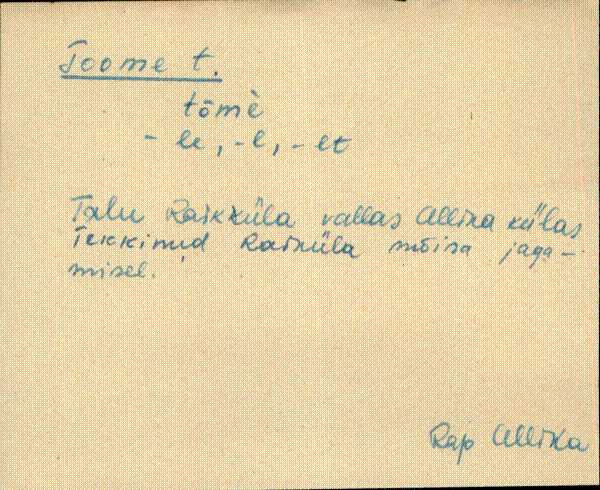 Toome t.
tōmè
- le, -l, - lt
Talu Raikküla vallas Allika külas
Tekkinud Raiküla mõisa jaga-
misel.
Rap Allika